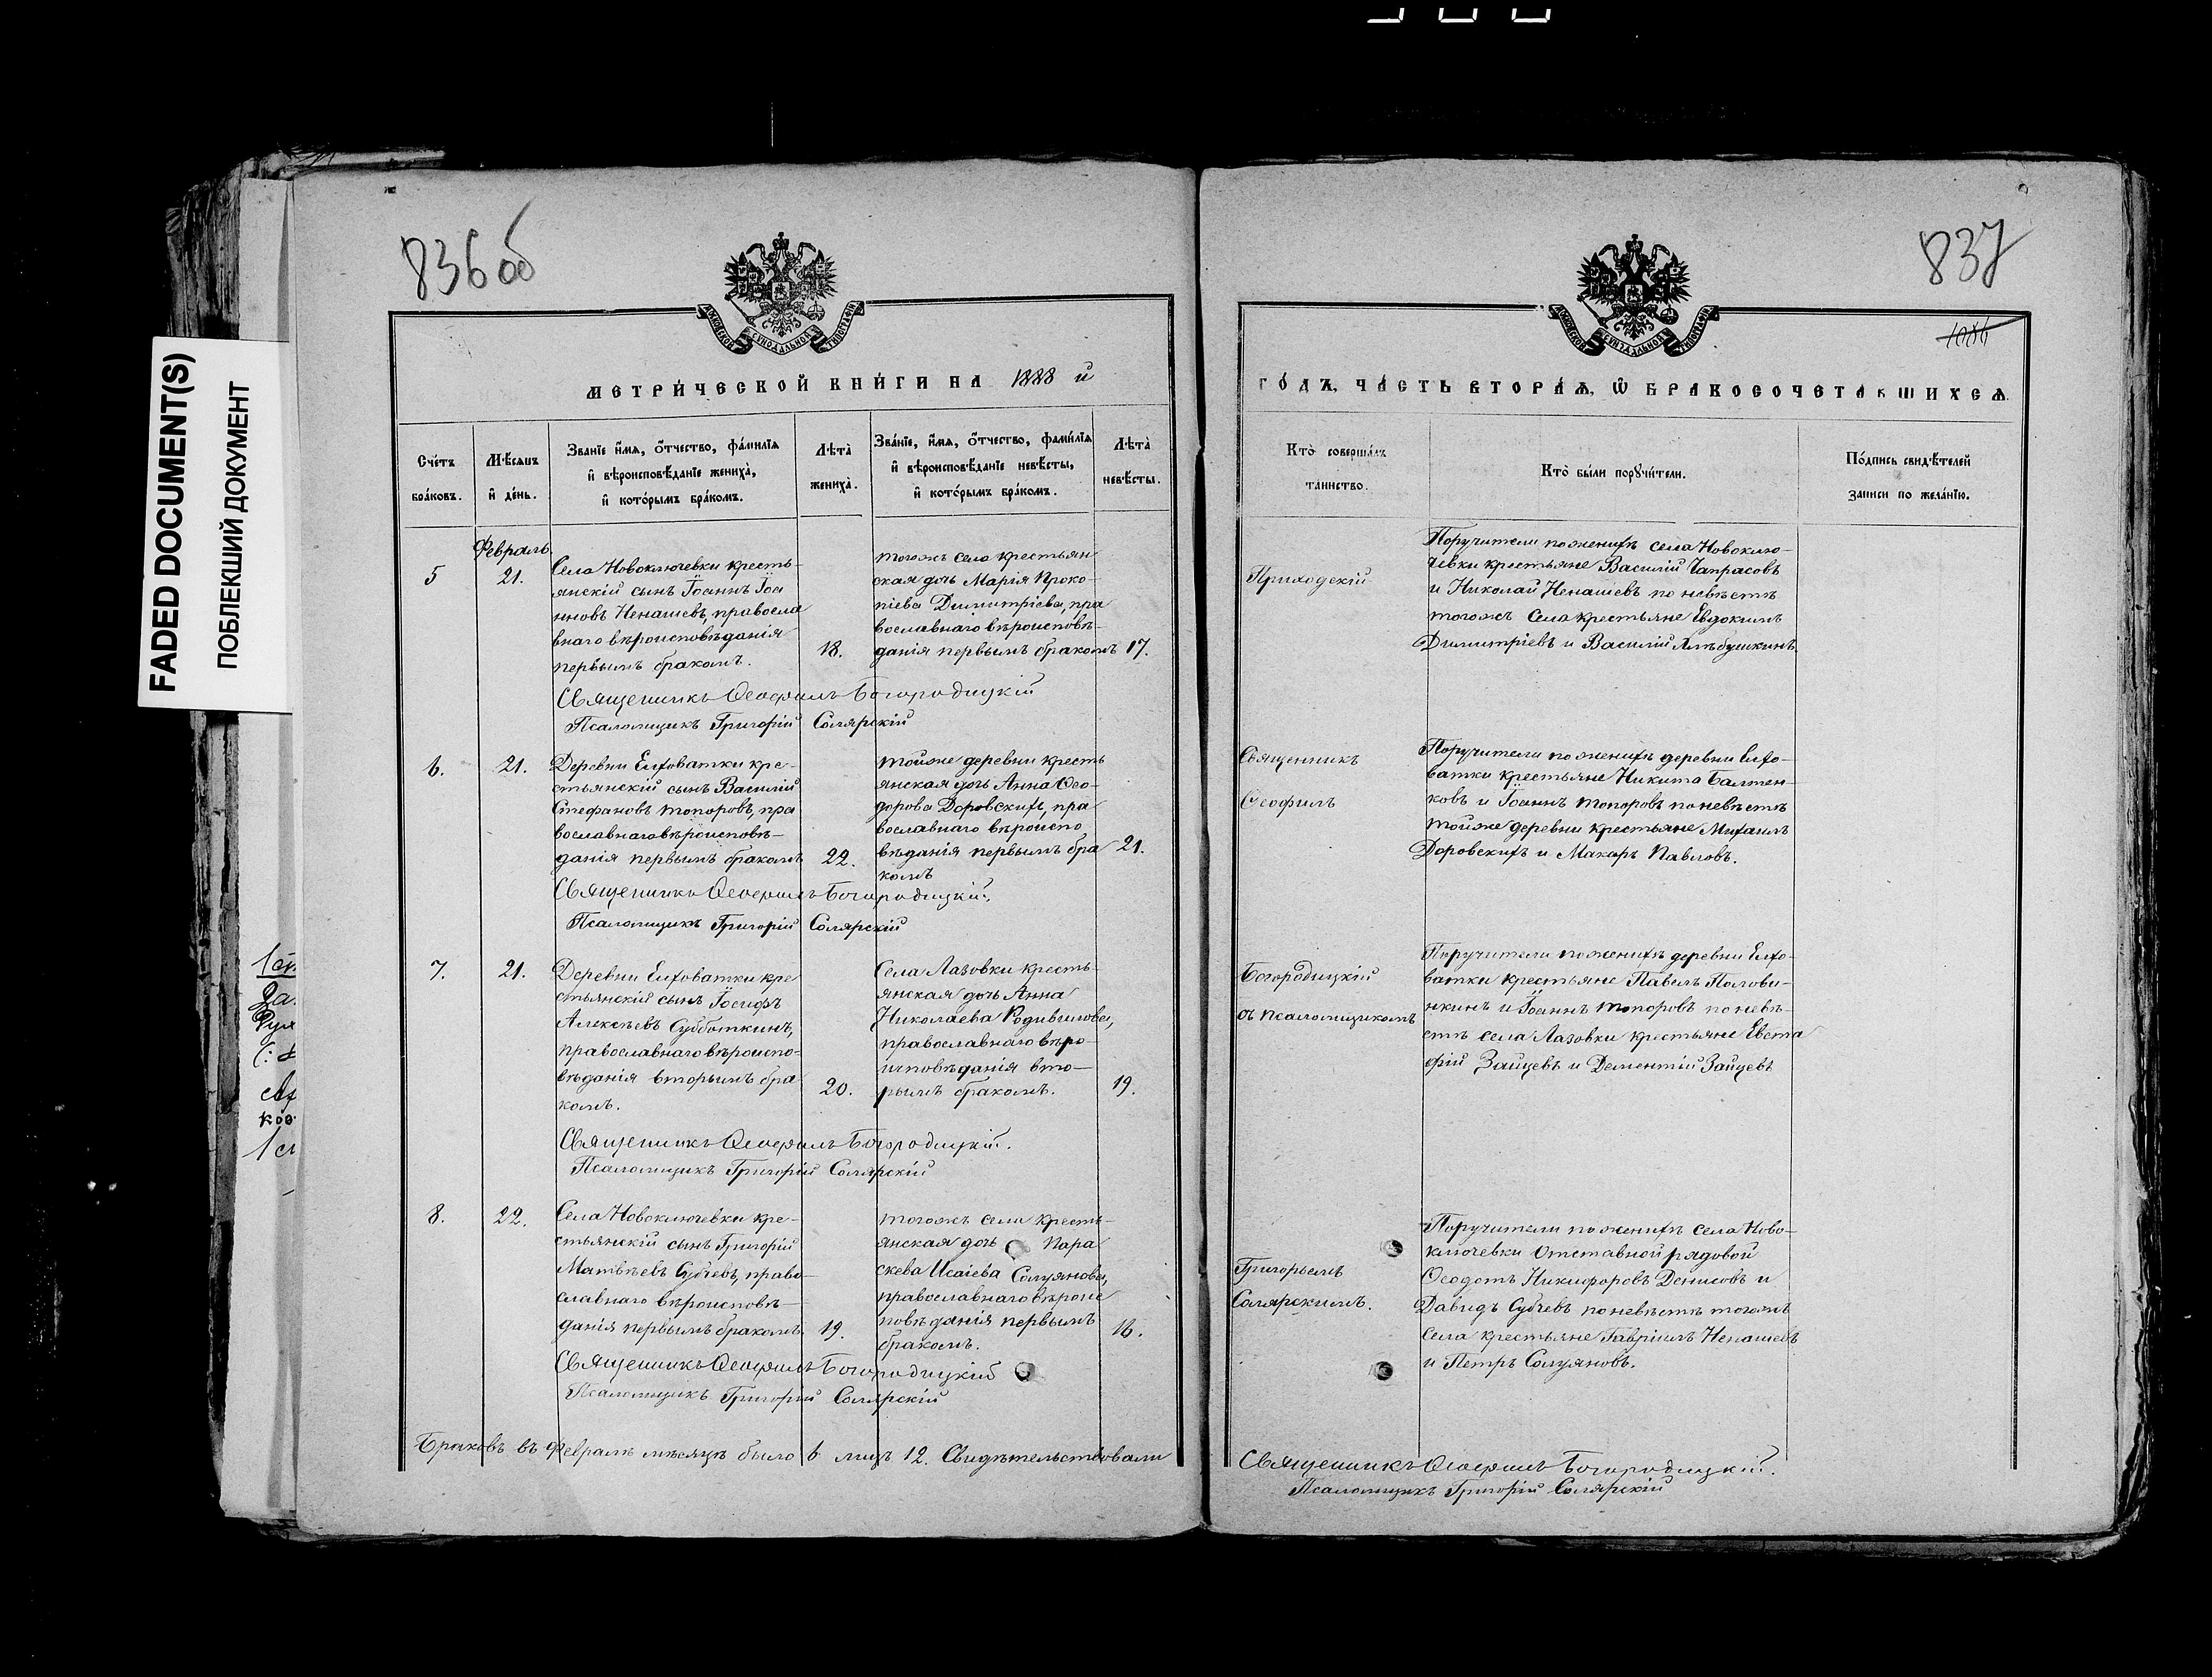 FADED DOCUMENT(S)
ПОБЛЕКШИЙ ДОКУМЕНТ
836об
МЕТРИ́ЧЕСКОЙ КНИ́ГИ НА 1888 й
Сче́тъ бра́ковъ.
Мѣ́сяцъ и де́нь.
Зва́нїе и҆́мѧ, ѻ҆́тчество, фами́лїѧ и҆ вѣроисповѣ́данїе жениха̀, и҆ кото́рымъ бра́комъ.
Лѣта̀ жениха̀.
Зва́нїе, и҆́мѧ, ѻ҆́тчество, фами́лїѧ и҆ вѣроисповѣ́данїе невѣ́сты, и҆ кото́рымъ бра́комъ.
Лѣта̀ невѣ́сты.
Февраль.
5
21.
Села Новоключевки кресть-
янскій сынъ Іоаннъ Іоа
нновъ Ненашевъ, правосла
внаго вѣроисповѣданія
первымъ бракомъ.
18.
тогожъ села крестьян
ская дочь Марія Проко-
піева Димитріева, пра
вославнаго вѣроисповѣ-
данія первымъ бракомъ
17.
Священникъ Ѳеофилъ Богородицкій
Псаломщикъ Григорій Солярскій
6.
21.
Деревни Елховатки кре-
стьянскій сынъ Василій
Стефановъ Топоровъ, пра
вославнаго вѣроисповѣ-
данія первымъ бракомъ
22.
тойже деревни кресть
янская дочь Анна Ѳео-
дорова Доровскихъ, пра
вославнаго вѣроиспо
вѣданія первымъ бра
комъ
21.
Священникъ Ѳеофилъ Богородицкій.
Псаломщикъ Григорій Солярскій
7.
21.
Деревни Елховатки кре
стьянскій сынъ Іосифъ
Алексѣевъ Субботкинъ,
православнаго вѣроиспо-
вѣданія вторымъ бра
комъ.
20.
Села Лазовки кресть-
янская дочь Анна
Николаева Родивилова,
православнаго вѣро-
исповѣданія вто-
рымъ бракомъ.
19.
Священникъ Ѳеофилъ Богородицкій.
Псаломщикъ Григорій Солярскій
8.
22.
Села Новоключевки кре-
стьянскій сынъ Григорій
Матвѣевъ Субчевъ, право-
славнаго вѣроисповѣ-
данія первымъ бракомъ
19.
тогожъ села кресть-
янская дочь Пара
скева Исаіева Солуянова,
православнаго вѣроис
повѣданія первымъ
бракомъ.
16.
Священникъ Ѳеофилъ Богородицкій
Псаломщикъ Григорій Солярскій
Браковъ въ Февралѣ мѣсяцѣ было 6 лицъ 12. Свидѣтельствовали
837
1086
ГО́ДЪ, ЧА́СТЬ ВТОРА́Ѧ, Ѽ БРАКОСОЧЕТА́ВШИХСѦ.
Кто̀ соверша́лъ та́инство.
Кто̀ бы́ли порꙋчи́тели.
По́дпись свидѣ́телей записи по жела́нїю.
Приходскій
Священникъ
Ѳеофилъ
Богородицкій
съ псаломщикомъ
Григорьемъ
Солярскимъ.
Поручители по женихѣ села Новоклю-
чевки крестьяне Василій Чапрасовъ
и Николай Ненашевъ по невѣстѣ
тогожъ села крестьяне Евдокимъ
Димитріевъ и Василій
Поручители по женихѣ деревни Елхо-
ватки крестьяне Никита Балтен-
ковъ и Іоаннъ Топоровъ по невѣстѣ
тойже деревни крестьяне Михаилъ
Доровскихъ и Макаръ Павловъ.
Поручители по женихѣ деревни Елхо-
ватки крестьяне Павелъ Полови-
нкинъ и Іоаннъ Топоровъ по невѣ-
стѣ села Лазовки крестьяне Евста
фій Зайцевъ и Дементій Зайцевъ
Поручители по женихѣ села Ново-
ключевки Отставной рядовой
Ѳеодотъ Никифоровъ Денисовъ и
Давидъ Субчевъ по невѣстѣ тогожъ
села крестьяне Гавріилъ Ненашевъ
и Петръ Солуяновъ.
Священникъ Ѳеофилъ Богородицкій.
Псаломщикъ Григорій Солярскій